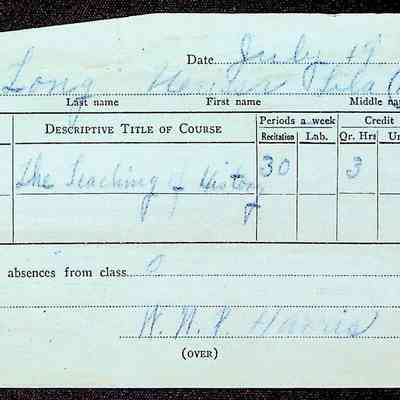 Date July 19
Long
Last name First name Middle na
Descriptive Title of Course Periods a week Credit
Recitation Lab. Qr. Hrs Un
The Teaching of History 30 3
absences from class 0
Harris
(OVER)